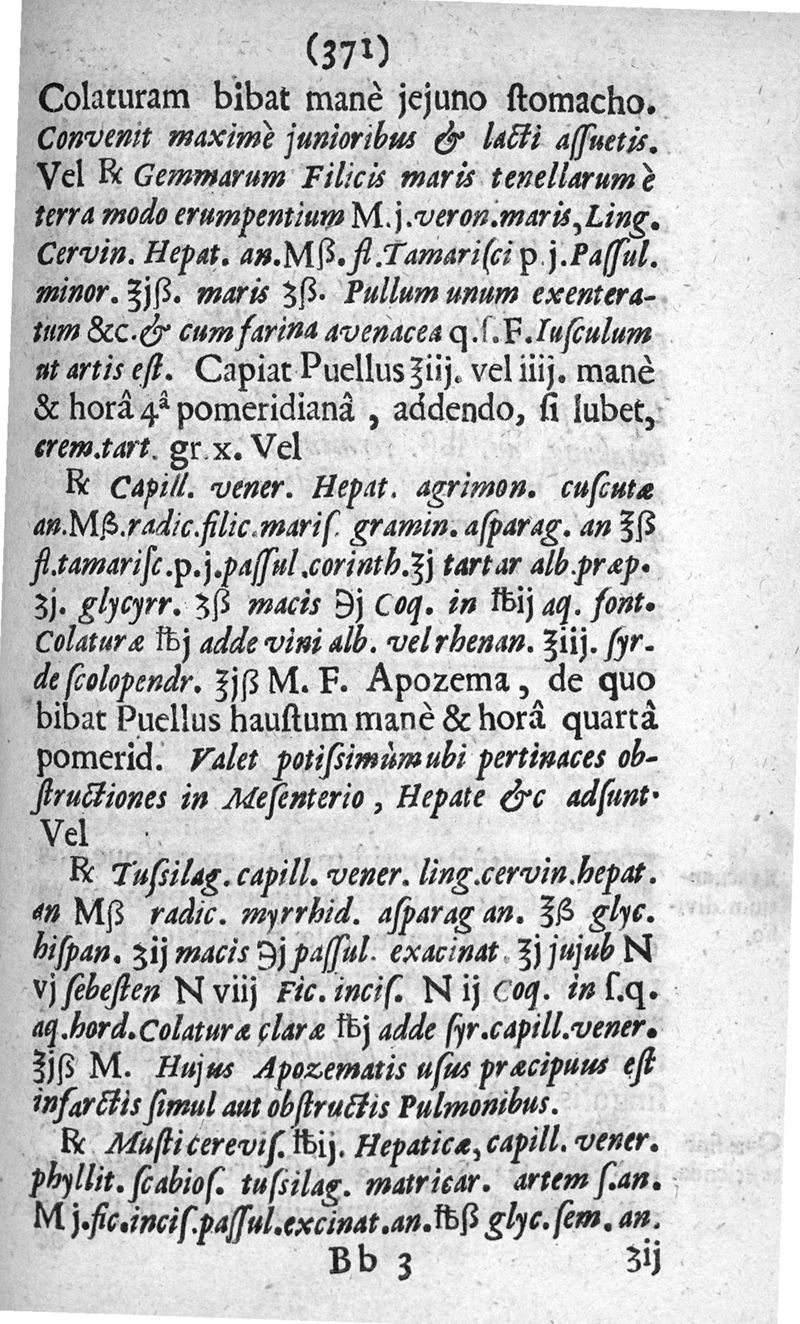 (371)
Colaturam bibat manè jejuno ſtomacho.
Convenit maximè junioribus & lacti aſſuetis.
Vel ℞ Gemmarum Filicis maris tenellarum è
terra modo erumpentium M.j.veron.maris,Ling.
Cervin. Hepat. an.Mß.fl.Tamariſci p.j.Paſſul.
minor. ℥jß. maris ʒß. Pullum unum exentera-
tum &c.& cum farina avenacea q.ſ.F.Iuſculum
ut artis eſt. Capiat Puellus ℥iij. vel iiij. manè
& horâ 4â pomeridianâ , addendo, ſi lubet,
crem.tart. gr.x. Vel
℞ Capill. vener. Hepat. agrimon. cuſcutæ
an.Mß.radic.filic.mariſ. gramin. aſparag. an ℥ß
fl.tamariſc.p.j.paſſul.corinth.℥j tartar alb.præp.
ʒj. glycyrr. ʒß macis ℈j Coq. in ℔ij aq. font.
Colaturæ ℔j adde vini alb. vel rhenan. ℥iij. ſyr.
de ſcolopendr. ℥jß M. F. Apozema , de quo
bibat Puellus hauſtum manè & horâ quartâ
pomerid. Valet potiſsimùm ubi pertinaces ob-
ſtructiones in Meſenterio , Hepate &c adſunt.
Vel
℞ Tuſsilag. capill. vener. ling.cervin.hepat.
an Mß radic. myrrhid. aſparag an. ℥ß glyc.
hiſpan. ʒij macis ℈j paſſul. exacinat. ℥j jujub N
vj ſebeſten N viij Fic. inciſ. N ij Coq. in ſ.q.
aq.hord.Colaturæ claræ ℔j adde ſyr.capill.vener.
℥jß M. Hujus Apozematis uſus præcipuus eſt
infarctis ſimul aut obſtructis Pulmonibus.
℞ Muſti cereviſ. ℔ij. Hepaticæ, capill. vener.
phyllit. ſcabioſ. tuſsilag. matricar. artem ſ.an.
M j.fic.inciſ.paſſul.excinat.an.℔ß glyc.ſem. an.
Bb 3 ʒij